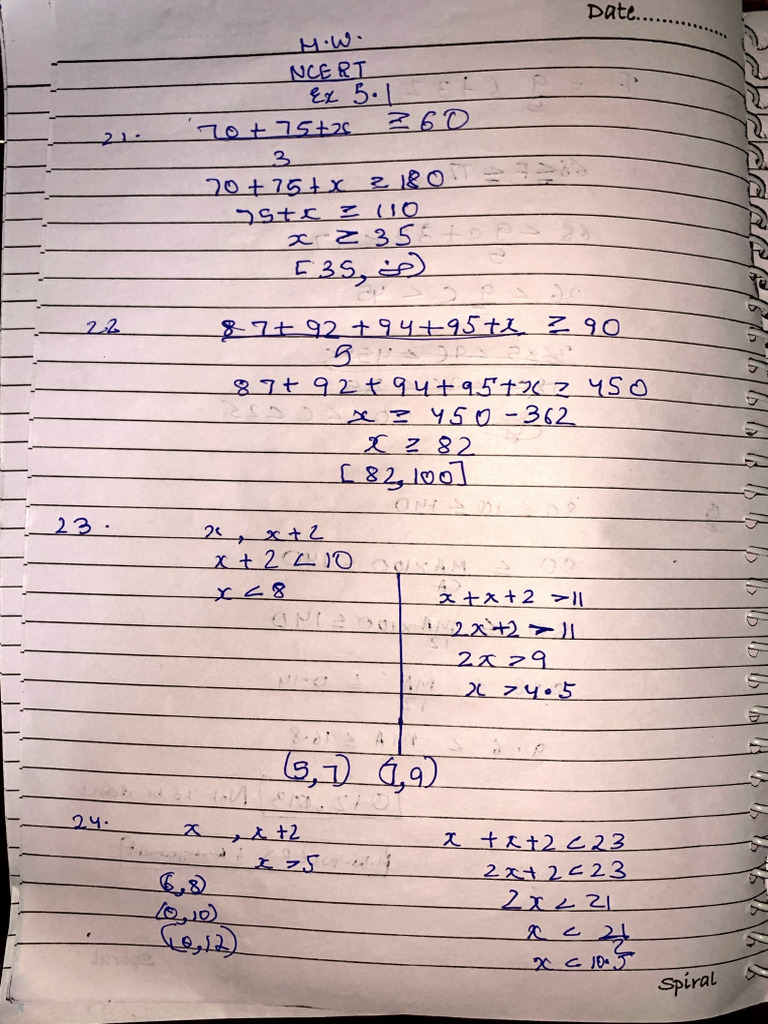 Date..............
H.W.
NCERT
Ex 5.1
21. 70 + 75 + x ≥ 60
3
70 + 75 + x ≥ 180
75 + x ≥ 110
x ≥ 35
[35, ∞)
22 87 + 92 + 94 + 95 + x ≥ 90
5
87 + 92 + 94 + 95 + x ≥ 450
x ≥ 450 - 362
x ≥ 82
[82, 100]
23. x, x + 2
x + 2 < 10
x < 8
x + x + 2 > 11
2x + 2 > 11
2x > 9
x > 4.5
(5, 7) (7, 9)
24. x, x + 2
x > 5
(6, 8)
(8, 10)
(10, 12)
x + x + 2 < 23
2x + 2 < 23
2x < 21
x < 21
2
x < 10.5
Spiral